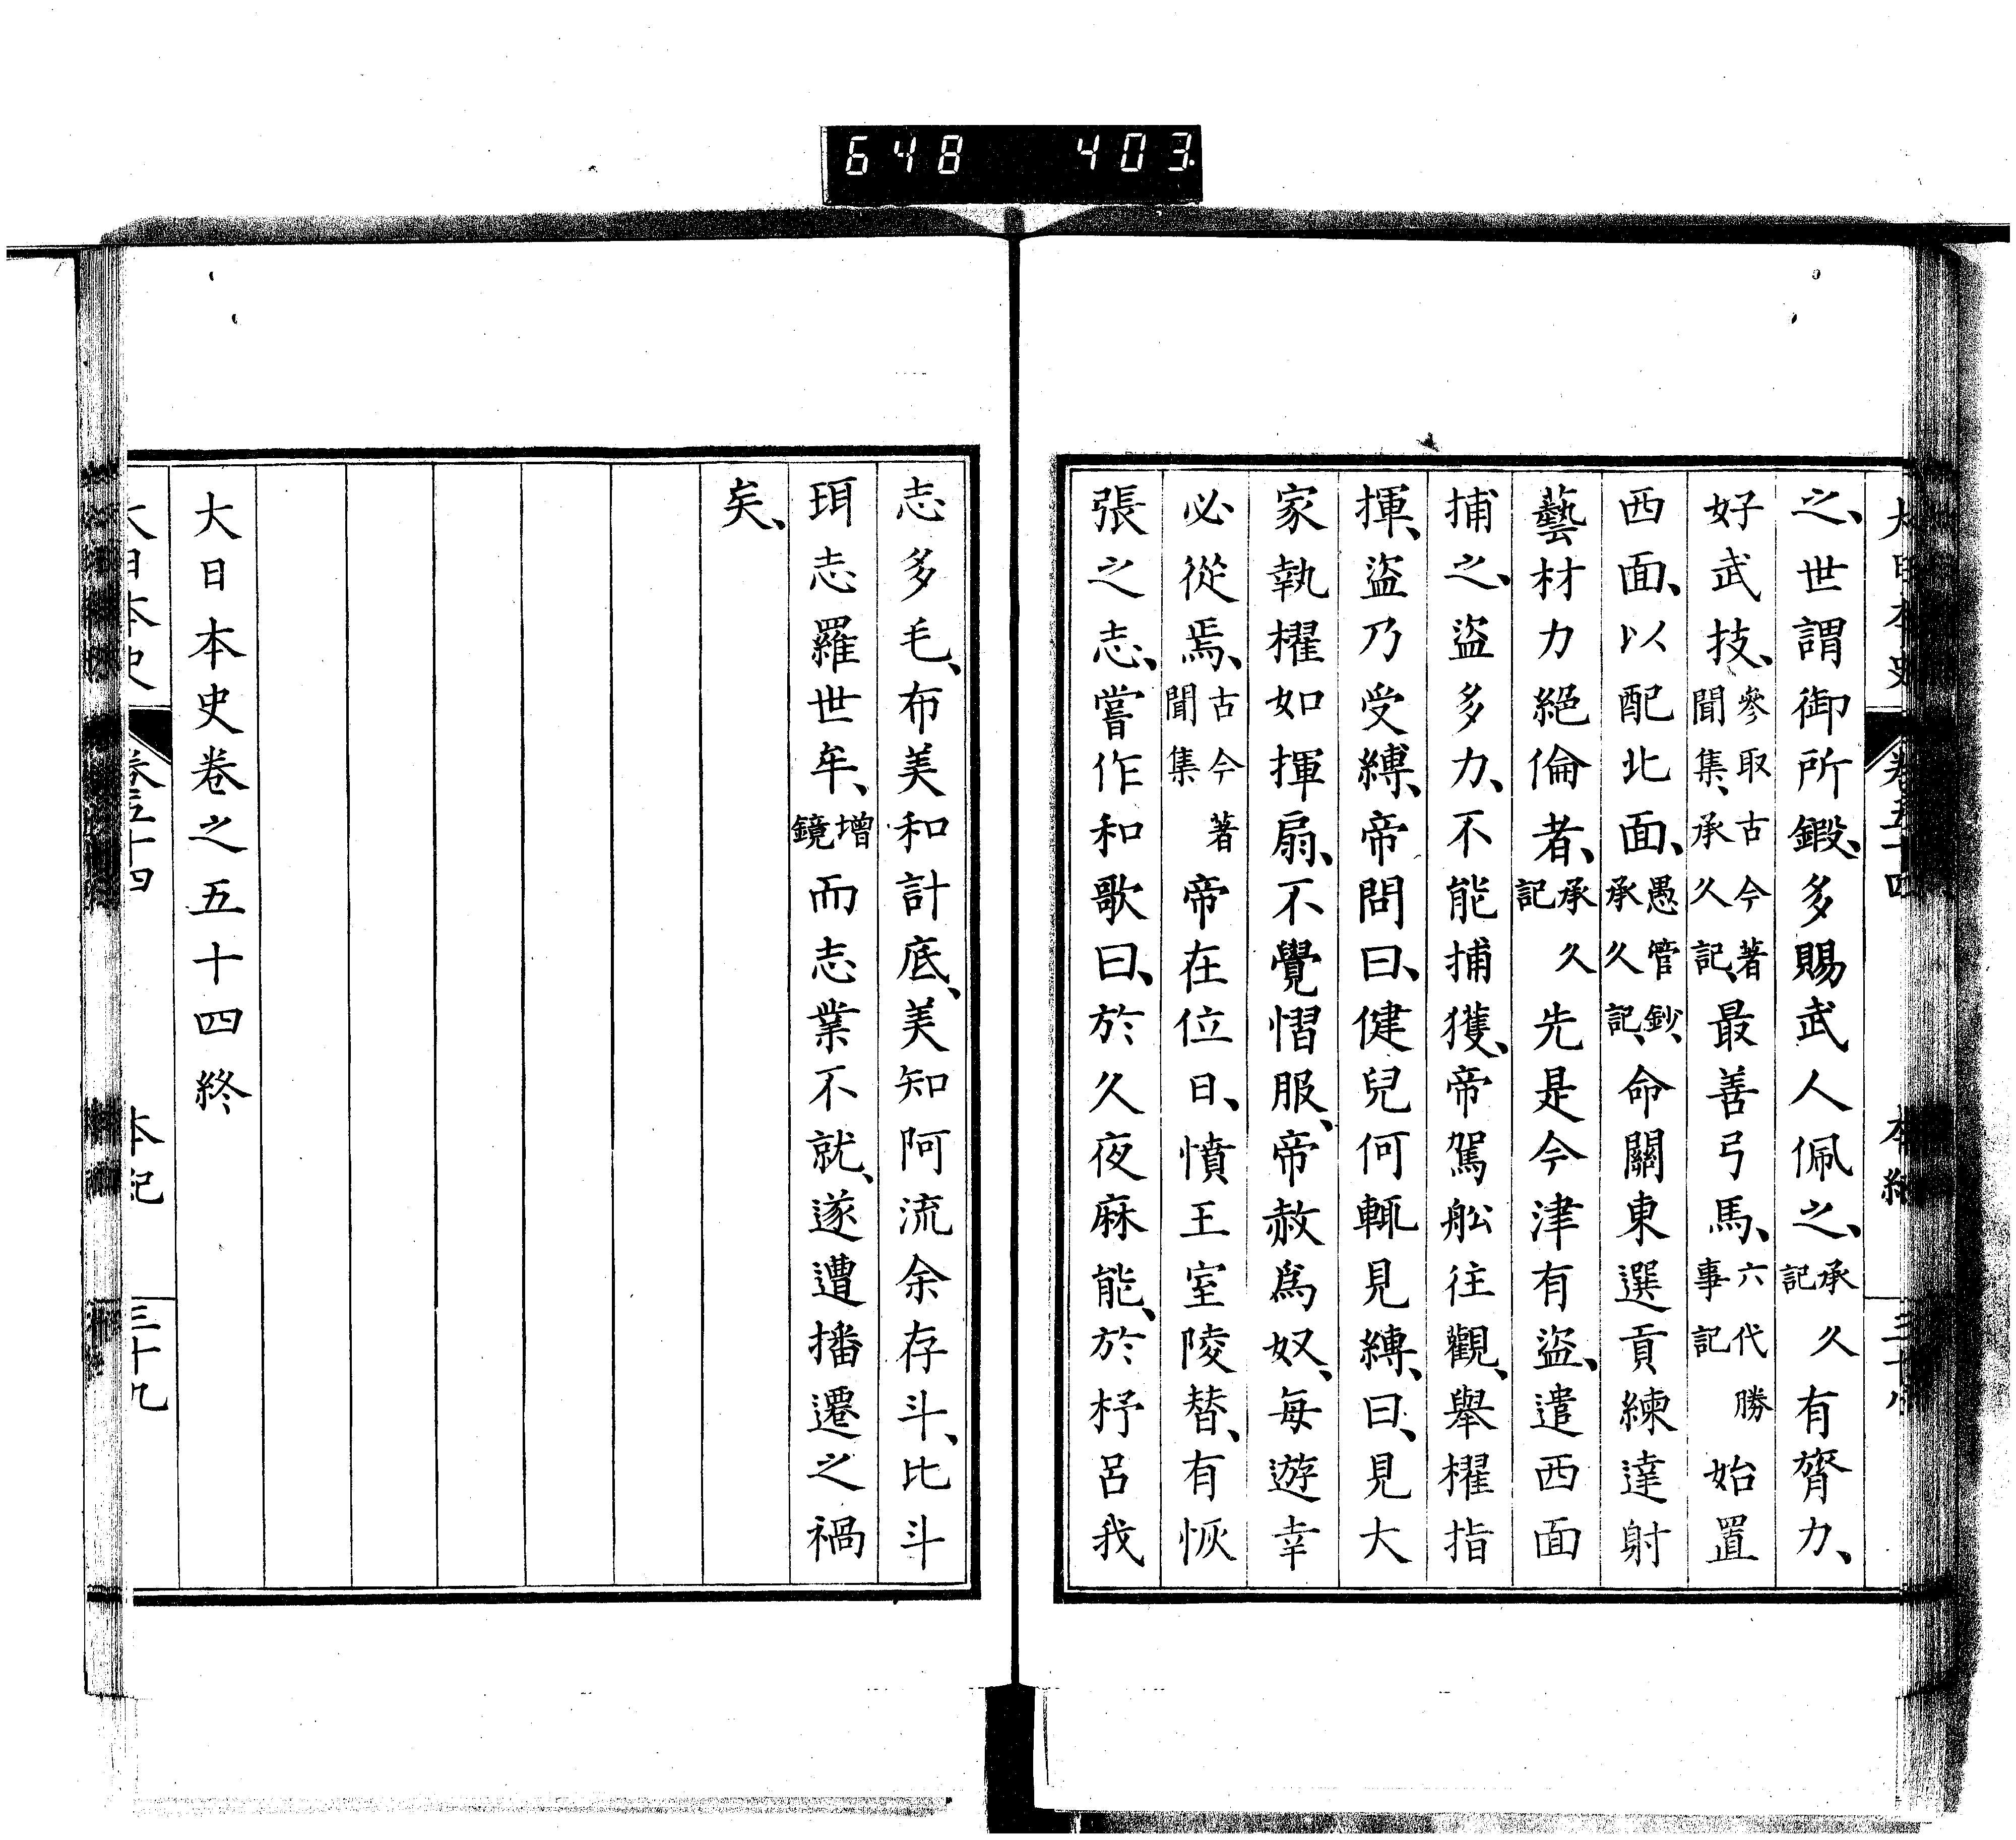 648 403
大日本史 卷五十四 本紀
之、世謂御所鍛、多賜武人佩之、承久記有膂力、
好武技、參取古今著聞集、承久記、最善弓馬、六代勝事記始置
西面、以配北面、愚管鈔、承久記、命關東選貢練達射
藝材力絕倫者、承久記先是今津有盜、遣西面
捕之、盜多力、不能捕獲、帝駕舩往觀、舉櫂指
揮、盜乃受縛、帝問曰、健兒何輒見縛、曰、見大
家執櫂如揮扇、不覺慴服、帝赦爲奴、每遊幸
必從焉、古今著聞集帝在位日、憤王室陵替、有恢
張之志、嘗作和歌曰、於久夜麻能、於杼呂我
志多毛、布美和計底、美知阿流余存斗、比斗
珥志羅世牟、增鏡而志業不就、遂遭播遷之禍
矣、
大日本史卷之五十四終
大日本史 卷五十四 本紀 三十九